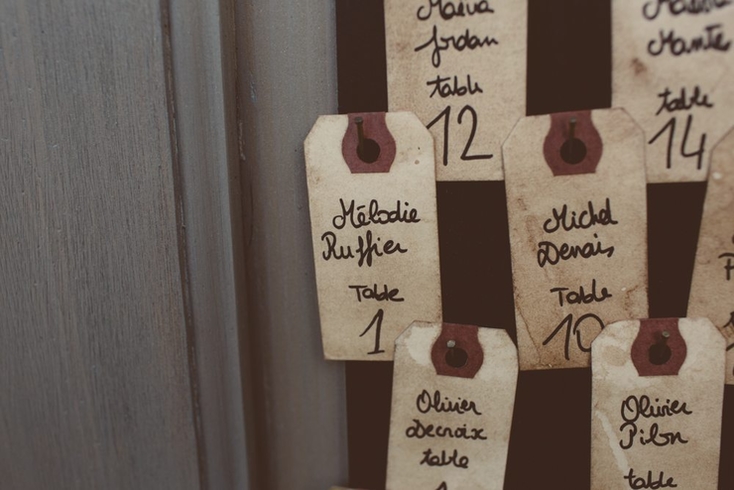 Jordan
table
12
Mante
table
14
Mélodie
Ruffier
Table
1
Michel
Denais
Table
10
Olivier
Decroix
table
Olivier
Pilon
table